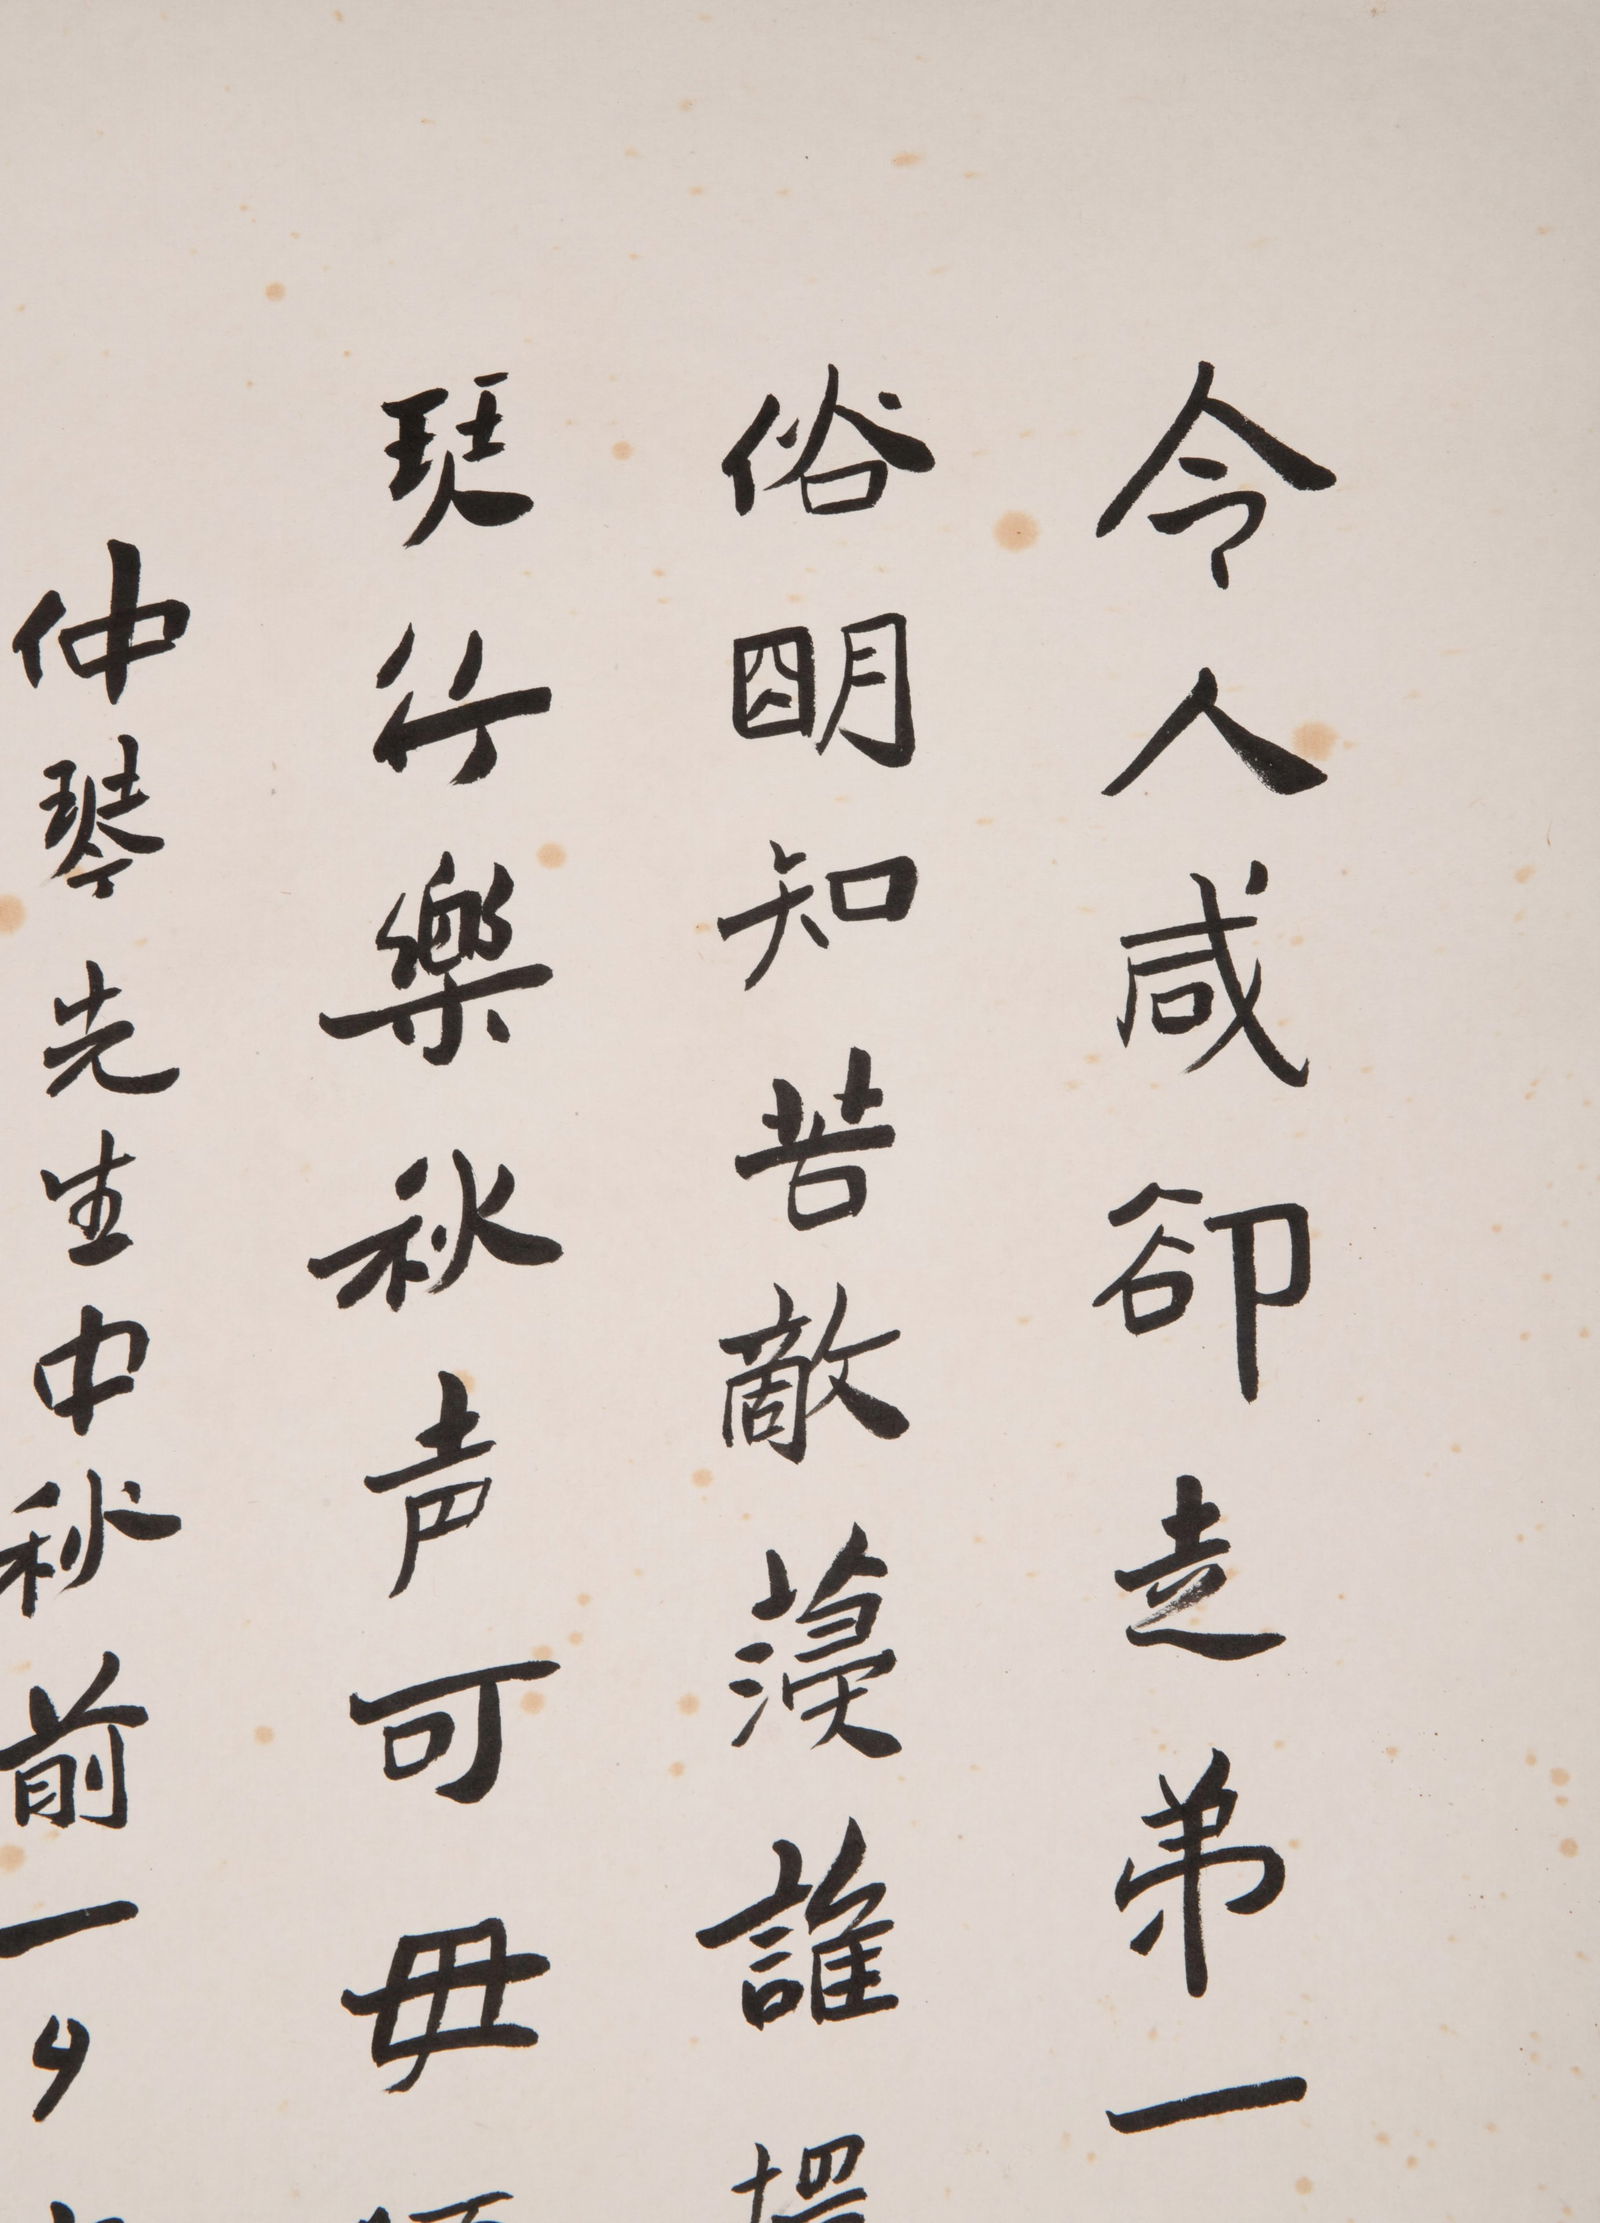 令人咸卻走弟一
俗明知苦敵蕩誰
琹竹樂秋声可毋
仲琴先生中秋前一夕